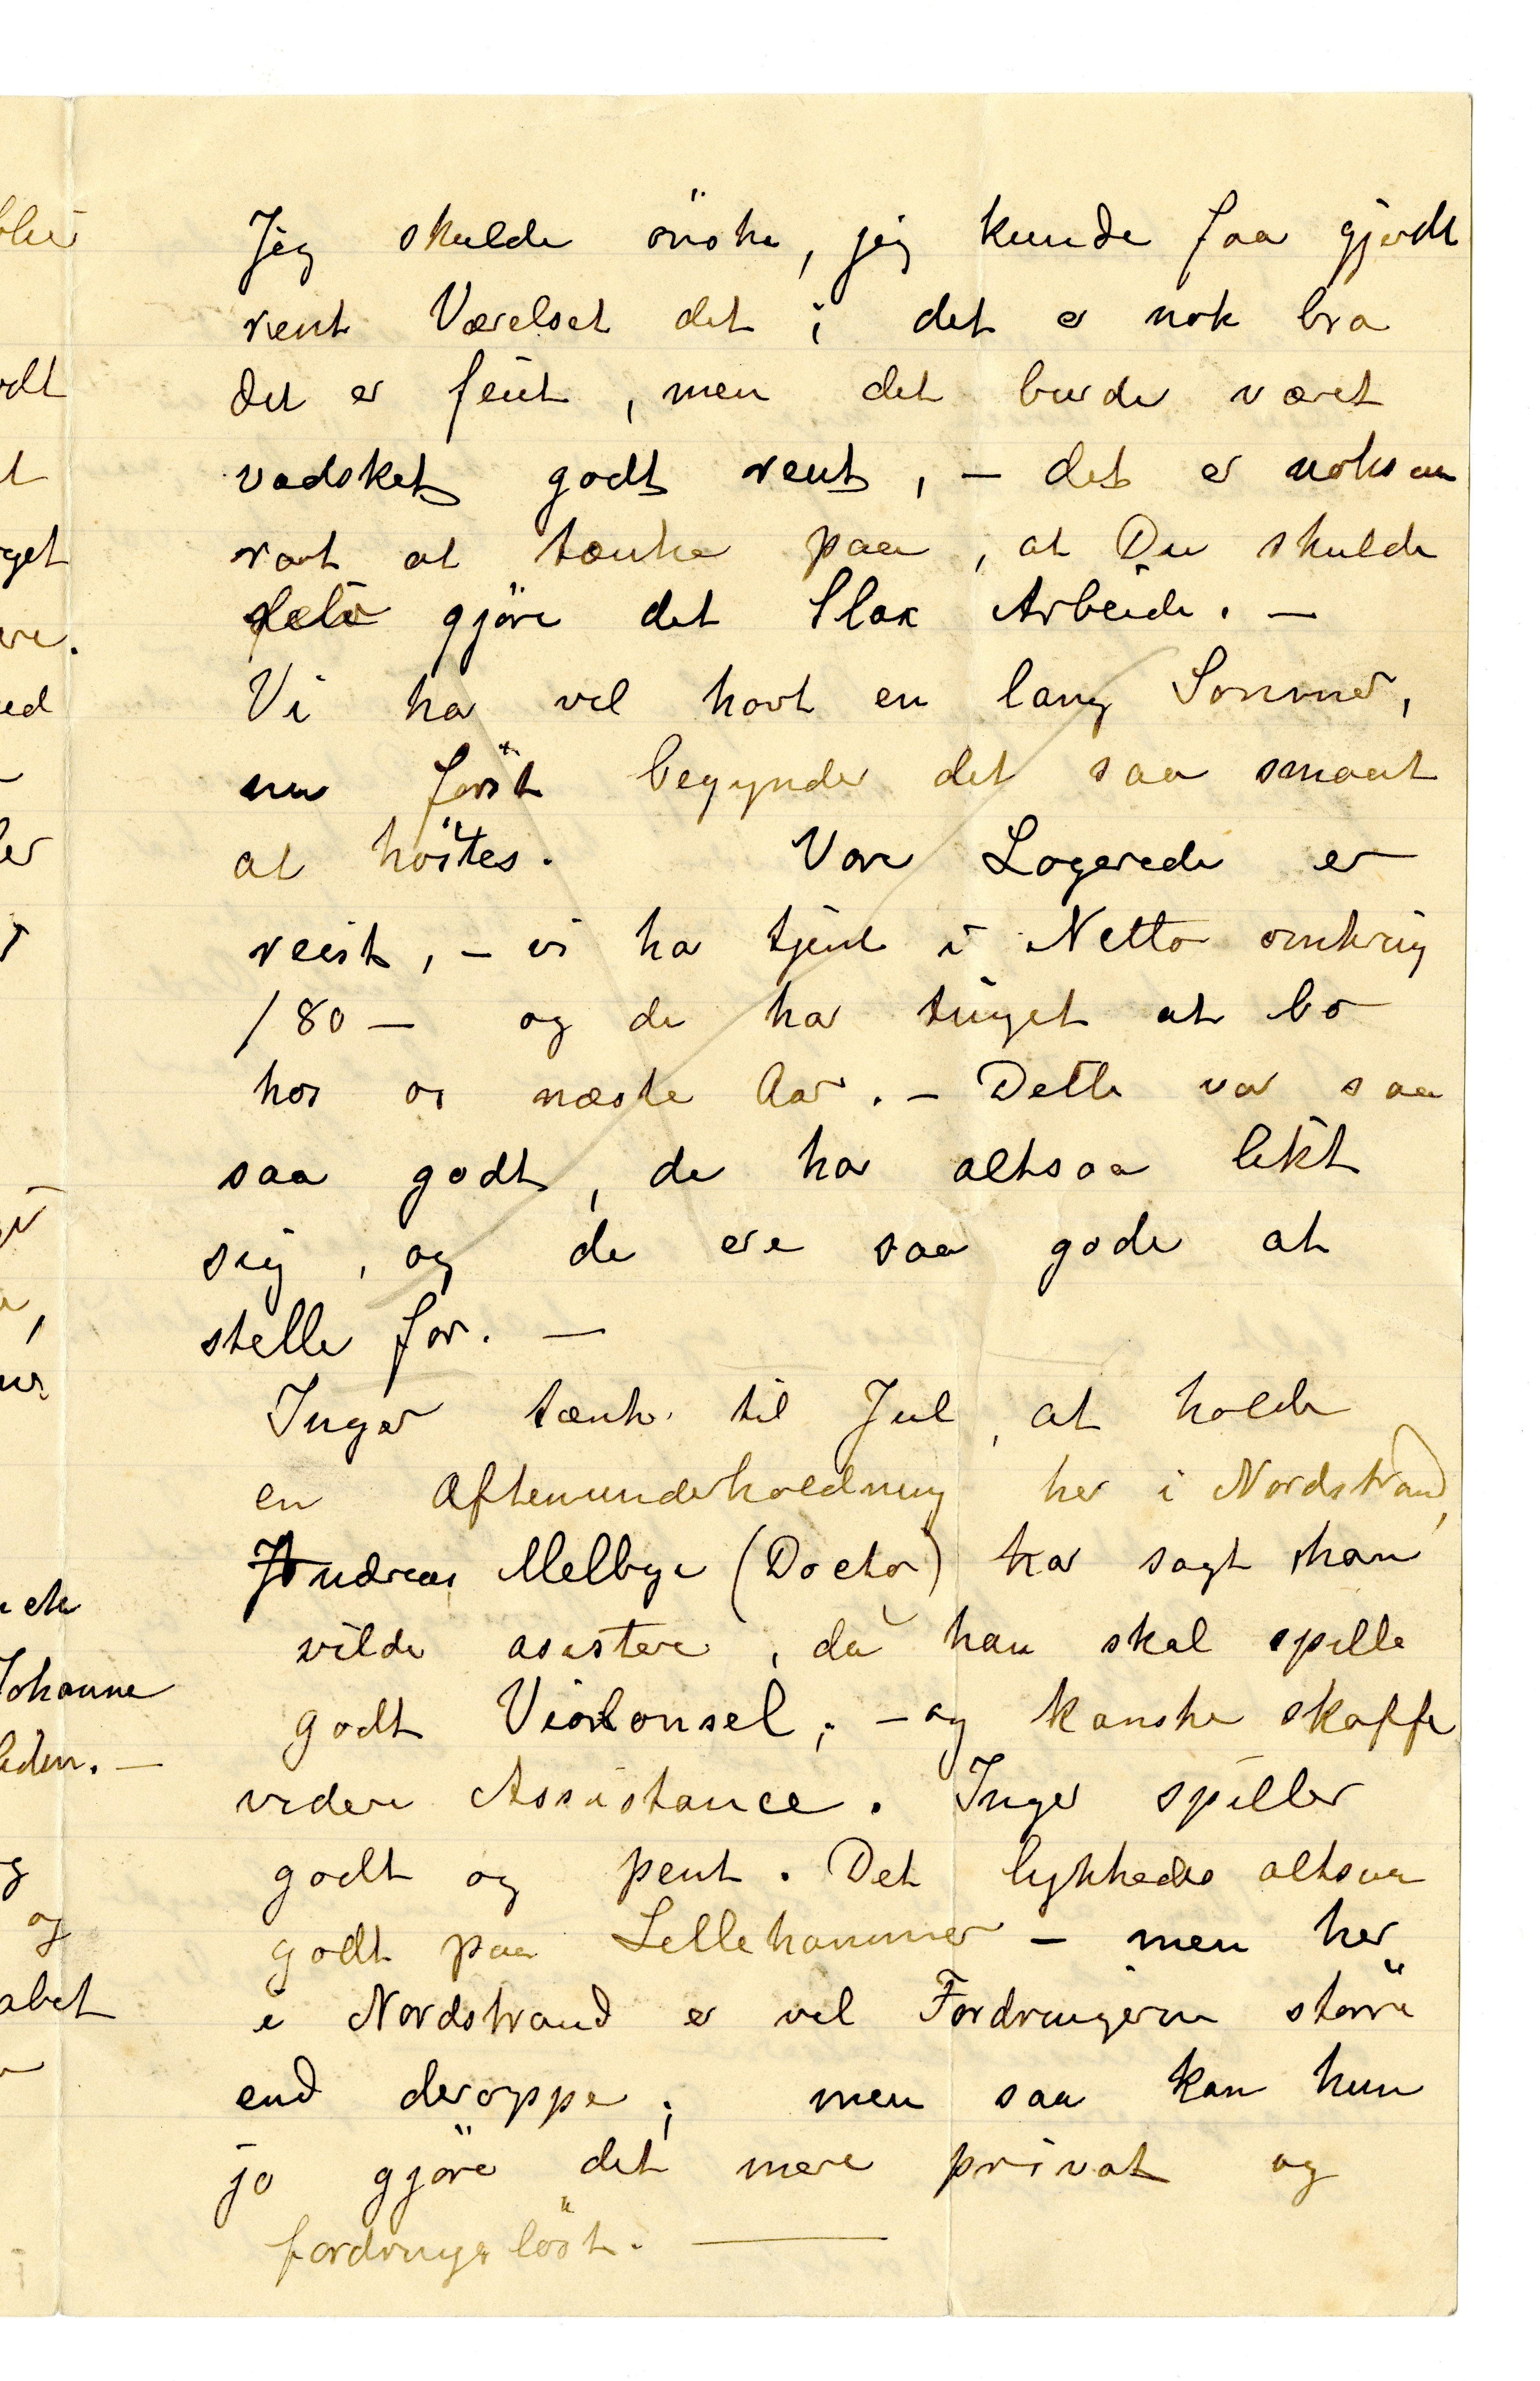 Jeg skulde önske, jeg kunde faa gjordt
rent Værelset dit; det er nok bra
det er feiet, men det burde været
vadsket godt rent, – det er noksaa
rart at tænke paa, at Du skulde
gjöre det Slax Arbeide. –
Vi ha vel havt en lang Sommer,
nu först begynder det saa smaat
at höstes. Vore Logerede er
reist, – vi ha tjent i Netto omkring
180 – og de har tinget at bo
hos os næste Aar. – Dette var saa
saa godt, de har altsaa likt
sig, og de ere saa gode at
stelle for. –
Inger tænk. til Jul, at holde
en Aftenunderholdning her i Nordstrand,
Andreas Melbye (Doctor) har sagt han
vilde asistere, da han skal spille
godt Violonsel; – og kanske skaffe
videre Assistance. Inger spiller
godt og pent. Det lykkedes altsaa
godt paa Lillehammer – men her
i Nordstrand er vel Fordringerne större
end deroppe; men saa kan hun
jo gjöre det mere privat og
fordringslöst. –
odt
get
ere.
Johanne
og